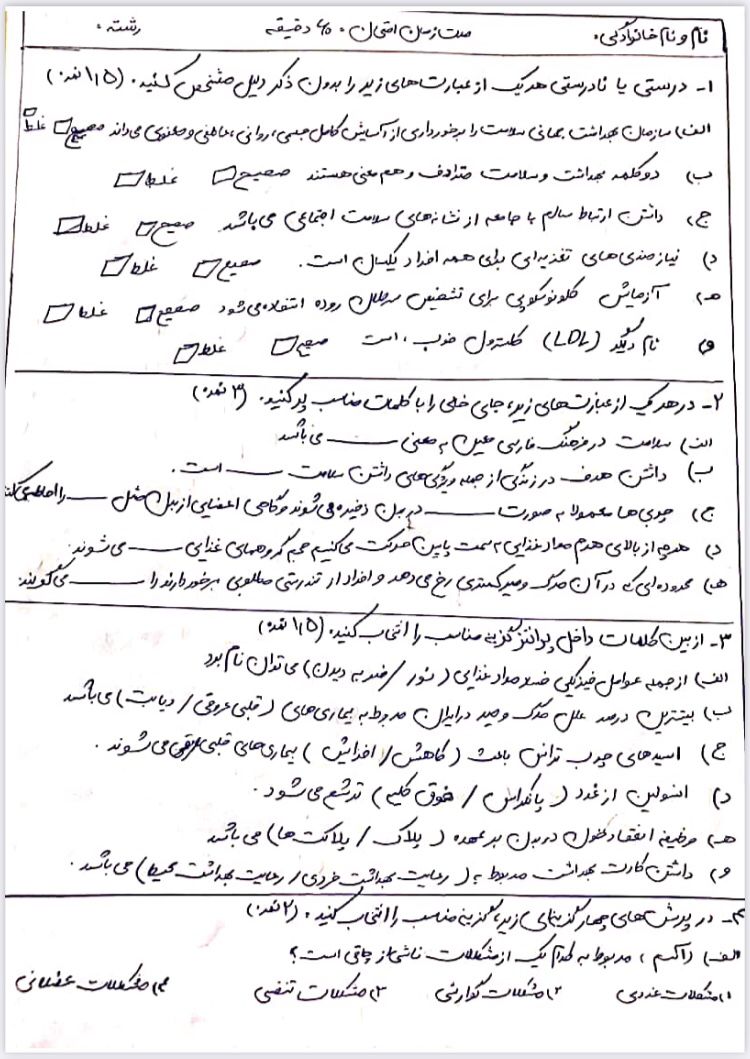 نام و نام خانوادگی: مدت زمان امتحان: ۶۰ دقیقه رشته:
۱- درستی یا نادرستی هر یک از عبارت‌های زیر را بدون ذکر دلیل مشخص کنید. (۱٫۵ نمره)
الف) سازمان بهداشت جهانی سلامت را برخورداری از آسایش کامل جسمی، روانی، عاطفی و معنوی می‌داند صحیح غلط
ب) دو کلمه بهداشت و سلامت مترادف و هم معنی هستند صحیح غلط
ج) داشتن ارتباط سالم با جامعه از نشانه‌های سلامت اجتماعی می‌باشد صحیح غلط
د) نیازمندی‌های تغذیه‌ای برای همه افراد یکسان است. صحیح غلط
هـ) آزمایش کلونوسکوپی برای تشخیص سرطان روده استفاده می‌شود صحیح غلط
و) نام دیگر (LDL) کلسترول خوب، است صحیح غلط
۲- در هر یک از عبارت‌های زیر، جای خالی را با کلمات مناسب پر کنید. (۳ نمره)
الف) سلامت در فرهنگ فارسی معین به معنی ــــــ می‌باشد
ب) داشتن هدف در زندگی از جمله ویژگی‌های داشتن سلامت ــــــ است.
ج) چربی‌ها معمولا به صورت ــــــ در بدن ذخیره می‌شوند و گاهی اعضایی از بدن مثل ــــــ را احاطه می‌کنند
د) هر چه از بالای هرم مواد غذایی به سمت پایین حرکت می‌کنیم حجم گروههای غذایی ــــــ می‌شوند.
هـ) محدوده‌ای که در آن مرگ و میر کمتری رخ می‌دهد و افراد از تندرستی مطلوبی برخوردارند را ــــــ می‌گویند.
۳- از بین کلمات داخل پرانتز گزینه مناسب را انتخاب کنید. (۱٫۵ نمره)
الف) از جمله عوامل فیزیکی فساد مواد غذایی (نور / ضربه دیدن) می‌توان نام برد
ب) بیشترین درصد علل مرگ و میر در ایران مربوط به بیماری‌های (قلبی عروقی / دیابت) می‌باشد
ج) اسیدهای چرب ترانس باعث (کاهش / افزایش) بیماری‌های قلبی عروقی می‌شوند.
د) انسولین از غدد (پانکراس / فوق کلیه) ترشح می‌شود.
هـ) وظیفه انعقاد خون در بدن بر عهده (پلاک / پلاکت‌ها) می‌باشد
و) داشتن کارت بهداشت مربوط به (رعایت بهداشت فردی / رعایت بهداشت محیط) می‌باشد.
۴- در پرسش‌های چهار گزینه‌ای زیر، گزینه مناسب را انتخاب کنید. (۲ نمره)
الف) آسم، مربوط به کدام یک از مشکلات ناشی از چاقی است؟
۱) مشکلات غددی ۲) مشکلات گوارشی ۳) مشکلات تنفسی ۴) مشکلات عضلانی